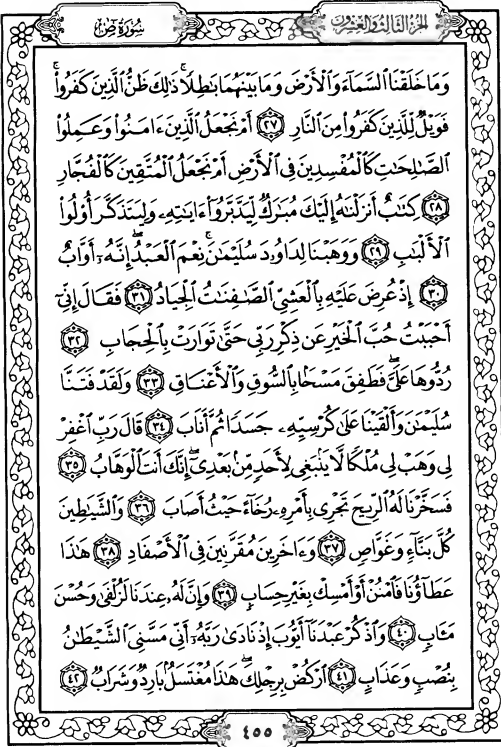 الجزء الثالث والعشرون
سورة ص
وَمَا خَلَقْنَا ٱلسَّمَآءَ وَٱلْأَرْضَ وَمَا بَيْنَهُمَا بَٰطِلًا ۚ ذَٰلِكَ ظَنُّ ٱلَّذِينَ كَفَرُوا۟ ۚ
فَوَيْلٌ لِّلَّذِينَ كَفَرُوا۟ مِنَ ٱلنَّارِ ٢٧ أَمْ نَجْعَلُ ٱلَّذِينَ ءَامَنُوا۟ وَعَمِلُوا۟
ٱلصَّٰلِحَٰتِ كَٱلْمُفْسِدِينَ فِى ٱلْأَرْضِ أَمْ نَجْعَلُ ٱلْمُتَّقِينَ كَٱلْفُجَّارِ
٢٨ كِتَٰبٌ أَنزَلْنَٰهُ إِلَيْكَ مُبَٰرَكٌ لِّيَدَّبَّرُوٓا۟ ءَايَٰتِهِۦ وَلِيَتَذَكَّرَ أُو۟لُوا۟
ٱلْأَلْبَٰبِ ٢٩ وَوَهَبْنَا لِدَاوُۥدَ سُلَيْمَٰنَ ۚ نِعْمَ ٱلْعَبْدُ ۖ إِنَّهُۥٓ أَوَّابٌ
٣٠ إِذْ عُرِضَ عَلَيْهِ بِٱلْعَشِىِّ ٱلصَّٰفِنَٰتُ ٱلْجِيَادُ ٣١ فَقَالَ إِنِّىٓ
أَحْبَبْتُ حُبَّ ٱلْخَيْرِ عَن ذِكْرِ رَبِّى حَتَّىٰ تَوَارَتْ بِٱلْحِجَابِ ٣٢
رُدُّوهَا عَلَىَّ ۖ فَطَفِقَ مَسْحًۢا بِٱلسُّوقِ وَٱلْأَعْنَاقِ ٣٣ وَلَقَدْ فَتَنَّا
سُلَيْمَٰنَ وَأَلْقَيْنَا عَلَىٰ كُرْسِيِّهِۦ جَسَدًا ثُمَّ أَنَابَ ٣٤ قَالَ رَبِّ ٱغْفِرْ
لِى وَهَبْ لِى مُلْكًا لَّا يَنۢبَغِى لِأَحَدٍ مِّنۢ بَعْدِىٓ ۖ إِنَّكَ أَنتَ ٱلْوَهَّابُ ٣٥
فَسَخَّرْنَا لَهُ ٱلرِّيحَ تَجْرِى بِأَمْرِهِۦ رُخَآءً حَيْثُ أَصَابَ ٣٦ وَٱلشَّيَٰطِينَ
كُلَّ بَنَّآءٍ وَغَوَّاصٍ ٣٧ وَءَاخَرِينَ مُقَرَّنِينَ فِى ٱلْأَصْفَادِ ٣٨ هَٰذَا
عَطَآؤُنَا فَٱمْنُنْ أَوْ أَمْسِكْ بِغَيْرِ حِسَابٍ ٣٩ وَإِنَّ لَهُۥ عِندَنَا لَزُلْفَىٰ وَحُسْنَ
مَـَٔابٍ ٤٠ وَٱذْكُرْ عَبْدَنَآ أَيُّوبَ إِذْ نَادَىٰ رَبَّهُۥٓ أَنِّى مَسَّنِىَ ٱلشَّيْطَٰنُ
بِنُصْبٍ وَعَذَابٍ ٤١ ٱرْكُضْ بِرِجْلِكَ ۖ هَٰذَا مُغْتَسَلٌۢ بَارِدٌ وَشَرَابٌ ٤٢
٤٥٥